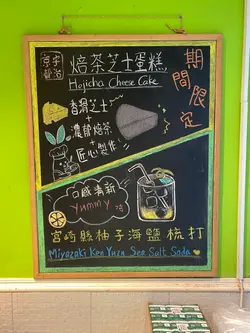 京都
宇治
焙茶芝士蛋糕
Hojicha Cheese Cake
期間限定
香滑芝士
+
濃醇焙茶
+
匠心製作
口感清新
Yummy
宮崎縣柚子海鹽梳打
Miyazaki Ken Yuzu Sea Salt Soda